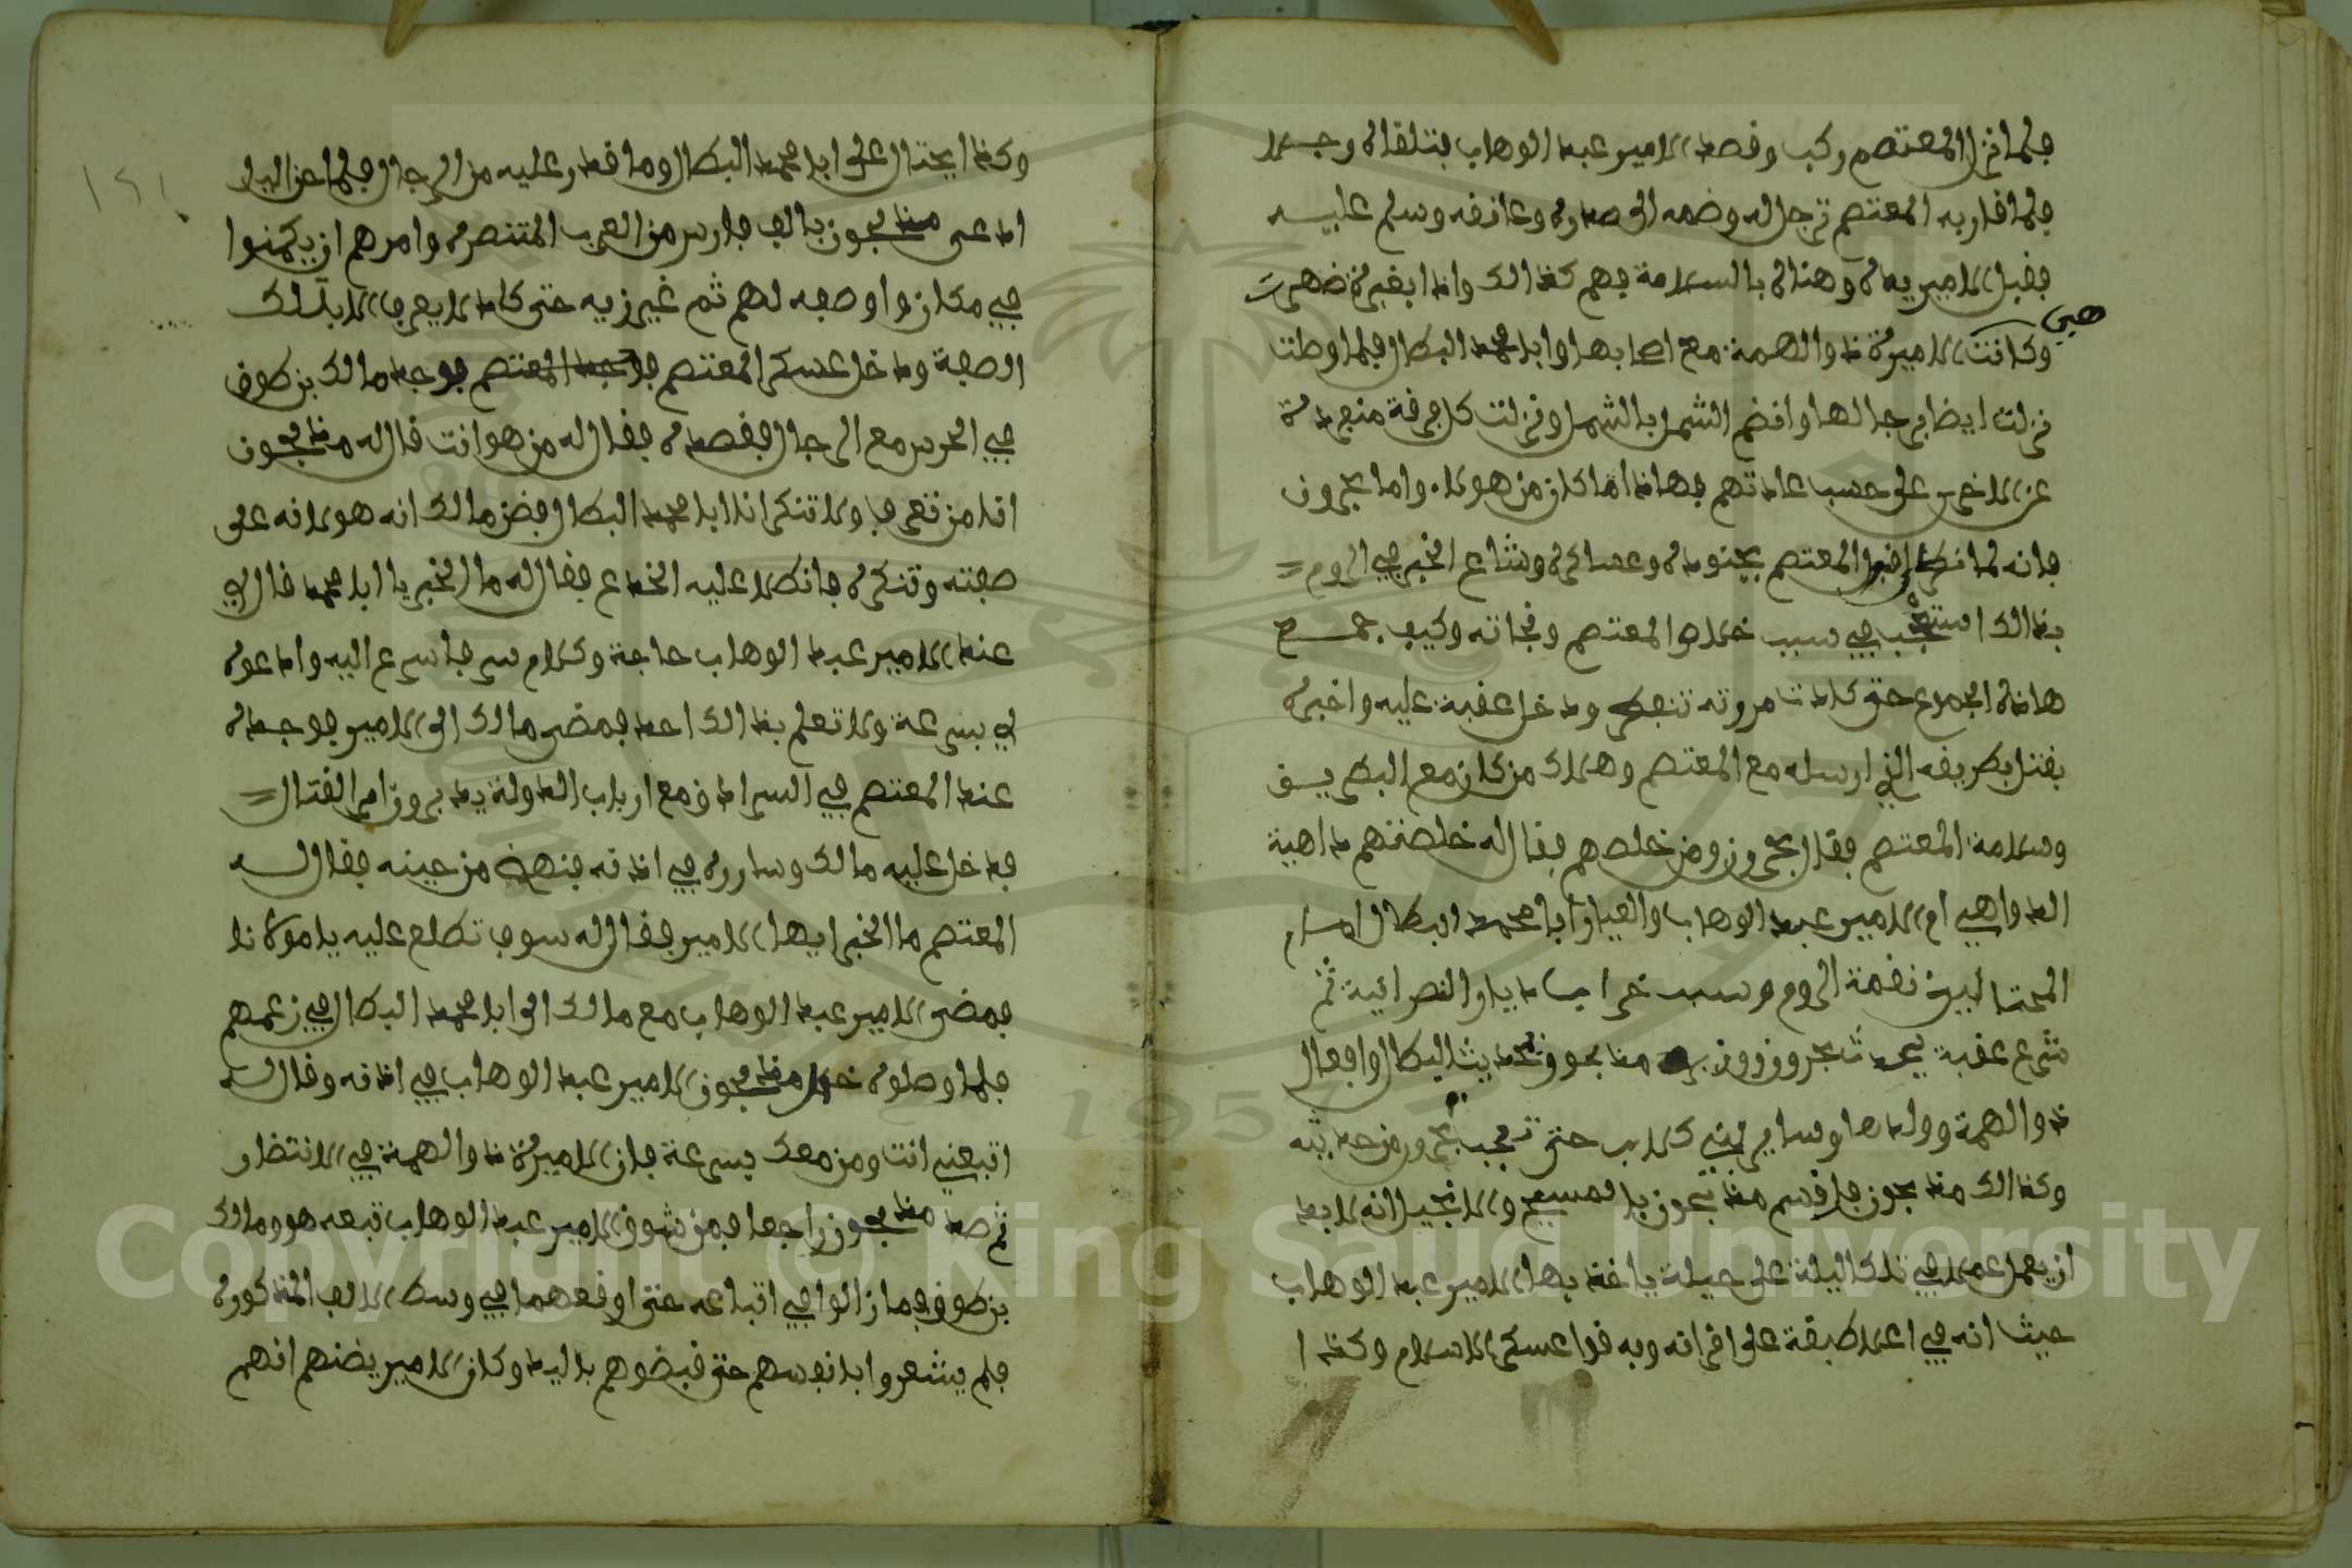 فلما نزل المعتصم ركب وقصد الامير عبد الوهاب بتلقاه وجلا
فلما قاربه المعتصم ترجل له وضمه الى صدره وعانقه وسلم عليه
فقبل الامير يده وهناه بالسلامة فهم كذالك واذا بغبرة ضهرت
هي
وكانت الاميرة ذوالهمة مع اصحابها وابا محمد البطال فلما وصلت
نزلت ايضا برجالها وانضم الشمل بالشمل ونزلت كل فرقة منفردة
عن الاخرى على حسب عادتهم فهاذا ما كان من هولاء واما بحرون
فانه لما انكسر المعتصم بجنوده وعساكره وشاع الخبر في الروم
بذالك استعجب في سبب خلاص المعتصم ونجاته وكيف جمع
هاذه الجموع حتى كادت مروته تنفطر ودخل عقبة عليه واخبره
بقتل بطريقه الذي ارسله مع المعتصم وهلاك من كان مع البطريق
وسلامة المعتصم فقال بحرون ومن خلصهم فقال له خلصتهم داهية
الدواهي ام الامير عبد الوهاب والعيار ابا محمد البطال امام
المحتالين نقمة الروم وسبب خراب ديار النصرانية ثم
شرع عقبة يحدث بحرون ومذبحون بحديث البطال وافعال
ذوالهمة وولدها وساير بني كلاب حتى تعجب بحرون من حديثه
وكذالك مذبحون فاقسم مذبحون بالمسيح والانجيل انه لابد
ان يعمل عملا في تلك الليلة على حيلة ياخذ بها الامير عبد الوهاب
حيث انه في اعلا طبقة على اقرانه وبه قوا عسكر الاسلام وكذا
وكذا يحتال على ابا محمد البطال وما قدر عليه من الرجال فلما جن اليل
ادعى مذبحون بالف فارس من العرب المتنصره وامرهم ان يكمنوا
في مكان واوصفه لهم ثم غير زيه حتى كاد لا يعرف الا بتلك
الصفة ودخل عسكر المعتصم فوجد المعتصم فوجد مالك بن طوق
في الحرس مع الرجال فقصده فقال له من هو انت قال له مذبحون
انا من تعرف ولا تنكر انا ابا محمد البطال فضن مالك انه هو لانه على
صفته وتنكره فانطلا عليه الخداع فقال له ما الخبر يا ابا محمد قال لي
عند الامير عبد الوهاب حاجة وكلام سر فاسرع اليه وادعوه
لي بسرعة ولا تعلم بذالك احد فمضى مالك الى الامير فوجده
عند المعتصم في السرادق مع ارباب الدولة يدبرون امر القتال
فدخل عليه مالك وساوره في اذنه فنهض من حينه فقال له
المعتصم ما الخبر ايها الامير فقال له سوف تطلع عليه يا مولانا
فمضى الامير عبد الوهاب مع مالك الى ابا محمد البطال في زعمهم
فلما وصلوه خلا مذبحون الامير عبد الوهاب في اذنه وقال له
اتبعني انت ومن معك بسرعة فان الاميرة ذوالهمة في الانتضار
ثم صد مذبحون راجعا فمن شوق الامير عبد الوهاب تبعه هو ومالك
بن طوق فما زالوا في اتباعه حتى اوقعهما في وسط الالف المذكورة
فلم يشعروا بانفسهم حتى قبضوهم باليد وكان الامير يضنهم انهم
Copyright © King Saud University
1957